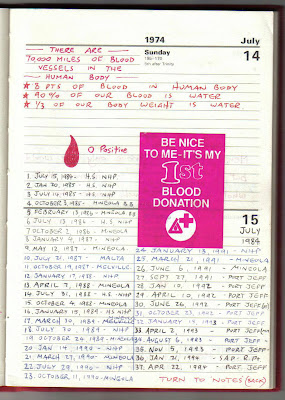 1974 July
Sunday 14
THERE ARE
70,000 MILES OF BLOOD
VESSELS IN THE
HUMAN BODY
★ 8 PTS OF BLOOD IN HUMAN BODY
★ 90% OF OUR BLOOD IS WATER
★ 1/3 OF OUR BODY WEIGHT IS WATER
O Positive
BE NICE
TO ME-IT'S MY
1st
BLOOD
DONATION
15
JULY
1984
1. JULY 15, 1984 - H.S. NHP
2. JAN 30, 1985 - H.S. NHP
3. JULY 15, 1985 - H.S. NHP
4. OCTOBER 3, 1985 - MINEOLA BB
5. FEBRUARY 13, 1986 - MINEOLA BB
6. JULY 13, 1986 - H.S. NHP
7. OCTOBER 2, 1986 - MINEOLA
8. JANUARY 4, 1987 - NHP
9. MAY 12, 1987 - MINEOLA
10. JULY 21, 1987 - MALTA
11. OCTOBER 19, 1987 - MELVILLE
12. JANUARY 17, 1988 - NHP
13. APRIL 7, 1988 MINEOLA
14. JULY 31, 1988 H.S. NHP
15. OCTOBER 4, 1988 - MINEOLA
16. JANUARY 15, 1989 H.S. NHP
17. MARCH 30, 1989
18. JULY 30, 1989 - NHP
19. OCTOBER 24, 1989 - MINEOLA
20. JAN 14, 1990 - NHP
21. MARCH 27, 1990 - MINEOLA
22. JULY 29, 1990 - NHP
23. OCTOBER 11, 1990 - MINEOLA
24. JANUARY 13, 1991 - NHP
25. MARCH 21, 1991 - MINEOLA
26. JUNE 6, 1991 - MINEOLA
27. SEP 27, 1991 - PORT JEFF
28. JAN 10, 1992 - PORT JEFF
29. APRIL 10, 1992 - PORT JEFF
30. JUNE 26, 1992 - PORT JEFF
31. OCTOBER 23, 1992 - PORT JEFF
32. JANUARY 15, 1993 - PORT JEFF
33. APRIL 2, 1993 - PORT JEFF
34. AUGUST 6, 1993 - PORT JEFF
35. NOV 5, 1993 - PORT JEFF
36. JAN 31, 1994 -
37. APR 22, 1994 - PORT JEFF
TURN TO NOTES (BACK)